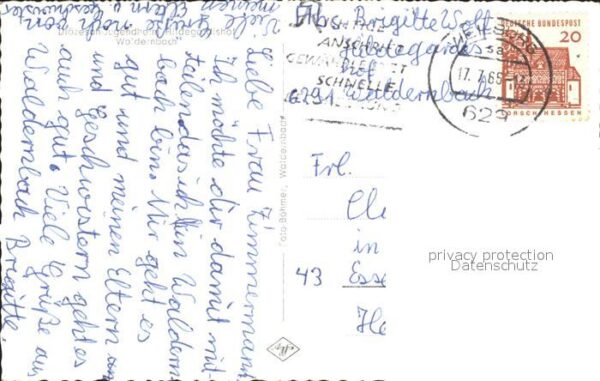 Liebe Frau Zimmermann
Ich möchte dir damit mit
teilen das ich in Waldern
bach bin. Mir geht es
gut und meinen Eltern
und Geschwistern geht es
auch gut. Viele Grüße aus
Waldernbach Brigitte.
Viele Grüße noch von
meinen Eltern u Geschwister
Diözesan Jugendheim Hildegardishof
Waldernbach
Foto Böhmer, Waldernbach
Brigitte Wolf
6291 Waldernbach
ANSCHRIFT
SCHNELLE
17.7.65
629
DEUTSCHE BUNDESPOST
20
LORSCH/HESSEN
Frl.
in
43 Esse
privacy protection
Datenschutz